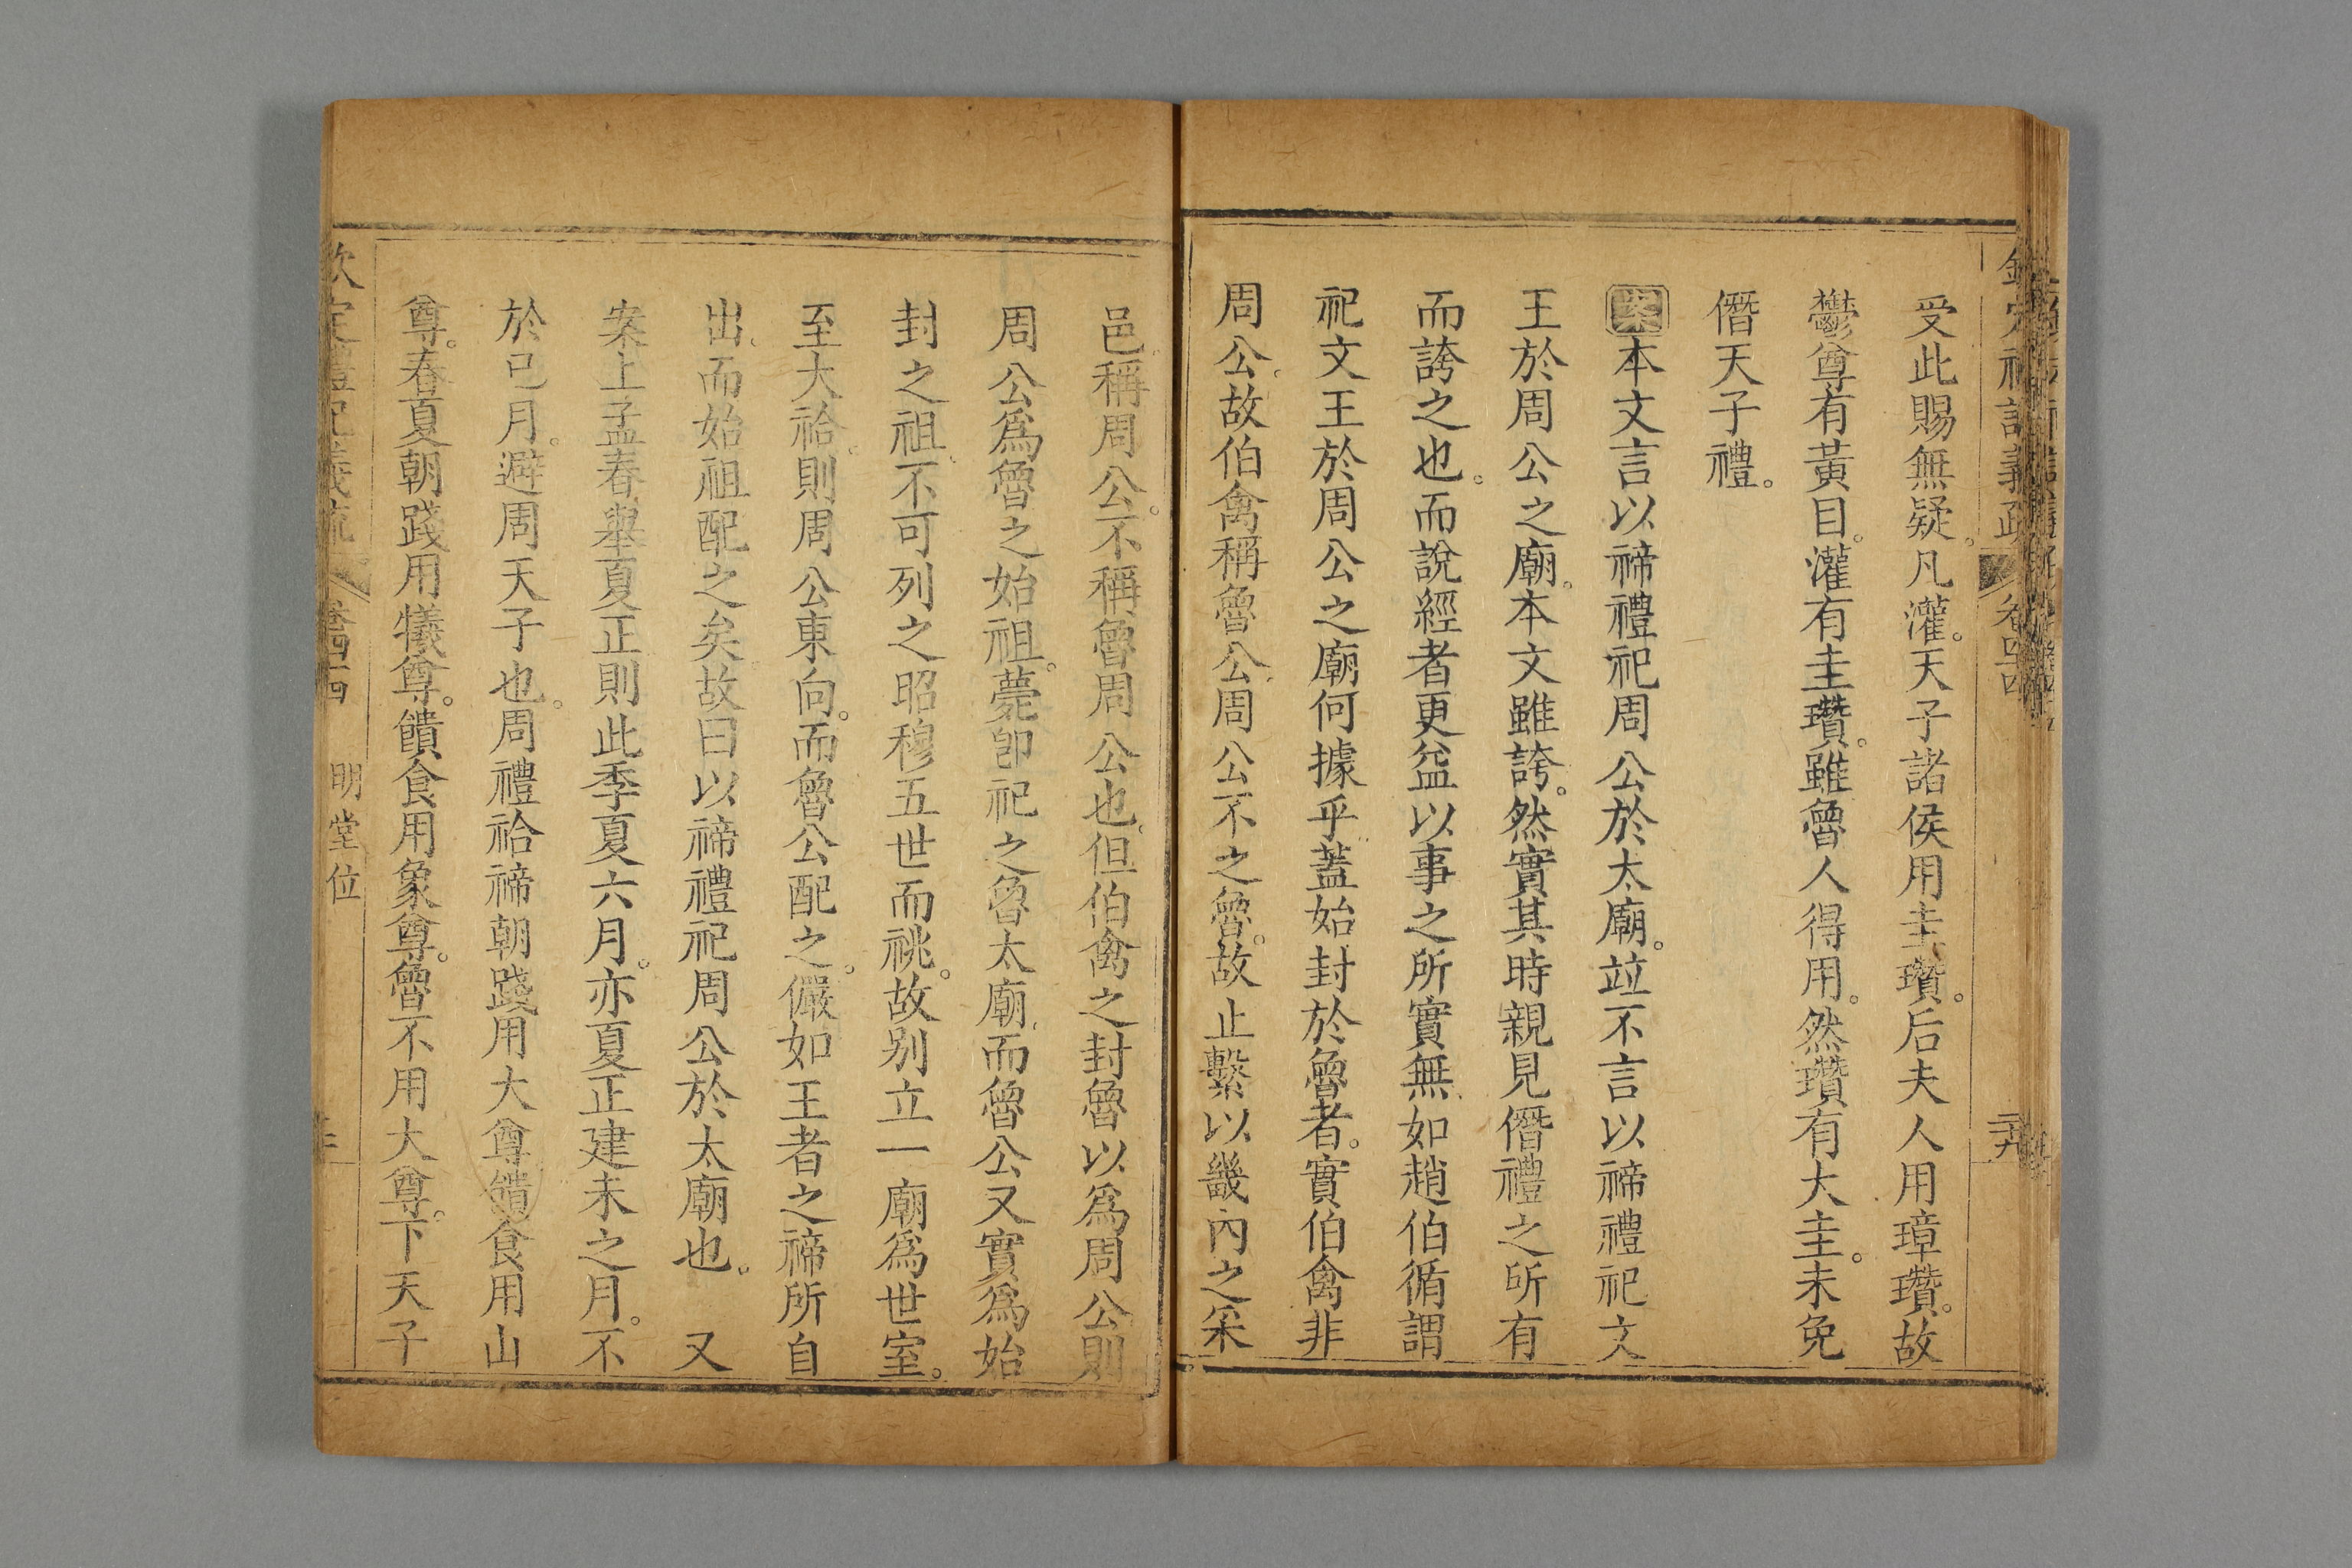 受此賜無疑。凡灌。天子諸侯用圭瓚。后夫人用璋瓚。故
鬱尊有黃目。灌有圭瓚。雖魯人得用。然瓚有大圭。未免
僭天子禮。
案本文言以禘禮祀周公於太廟。竝不言以禘禮祀文
王於周公之廟。本文雖誇。然實其時親見僭禮之所有
而誇之也。而說經者更益以事之所實無。如趙伯循謂
祀文王於周公之廟何據乎。蓋始封於魯者。實伯禽非
周公。故伯禽稱魯公。周公不之魯。故止繫以畿內之采
邑稱周公。不稱魯周公也。但伯禽之封魯以爲周公則
周公爲魯之始祖。薨卽祀之魯太廟。而魯公又實爲始
封之祖。不可列之昭穆五世而祧。故别立一廟爲世室。
至大祫。則周公東向。而魯公配之。儼如王者之禘所自
出。而始祖配之矣。故曰以禘禮祀周公於太廟也。　又
案上孟春舉夏正則此季夏六月。亦夏正建未之月。不
於巳月。避周天子也。周禮祫禘朝踐用大尊饋食用山
尊。春夏朝踐用犧尊。饋食用象尊。魯不用大尊。下天子
欽定禮記義疏 卷四四 明堂位